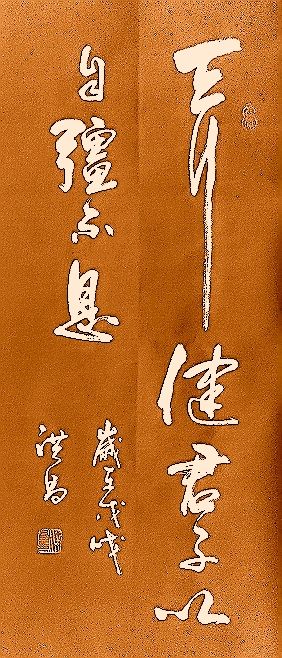 天行健君子以
自彊不息
歲在戊戌
洪昌